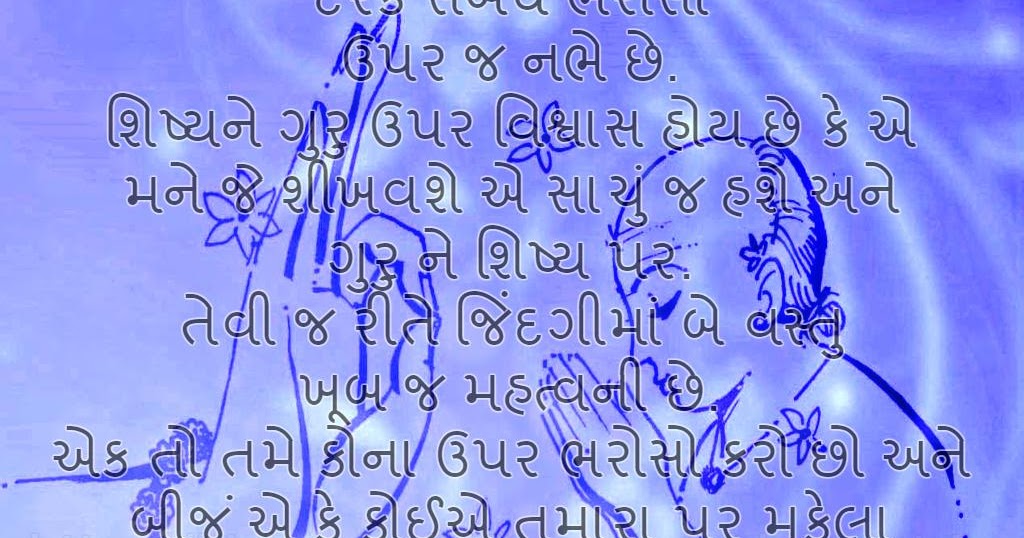 દરેક સંબંધ ભરોસા
ઉપર જ નભે છે.
શિષ્યને ગુરુ ઉપર વિશ્વાસ હોય છે કે એ
મને જે શીખવશે એ સાચું જ હશે અને
ગુરુ ને શિષ્ય પર.
તેવી જ રીતે જિંદગીમાં બે વસ્તુ
ખૂબ જ મહત્વની છે.
એક તો તમે કોના ઉપર ભરોસો કરો છો અને
બીજું એ કે કોઈએ તમારા પર મુકેલા